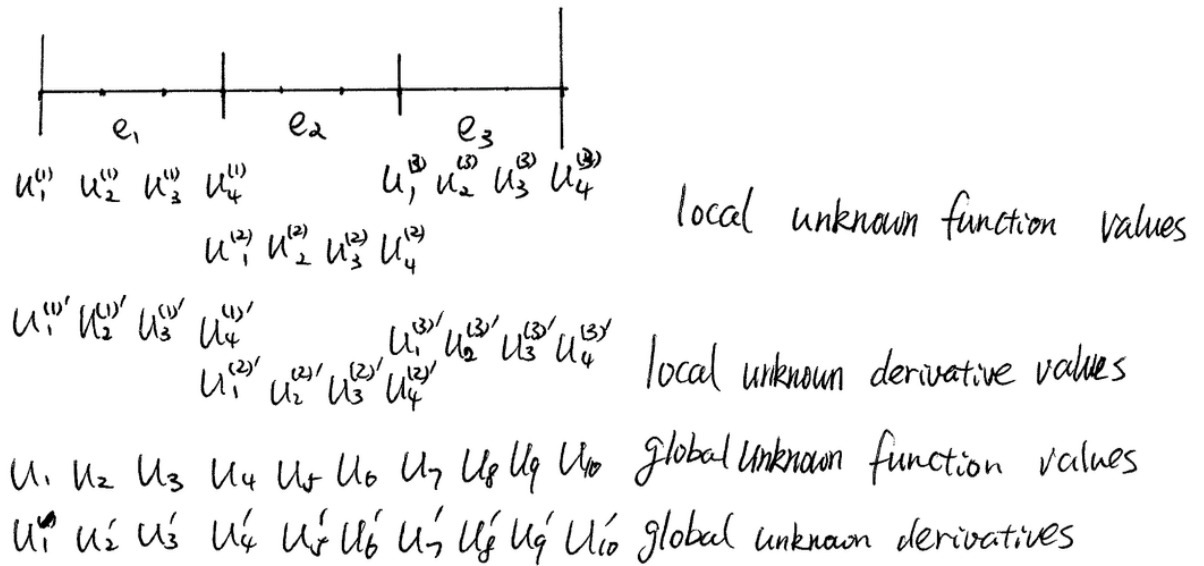 e₁ e₂ e₃
u₁⁽¹⁾ u₂⁽¹⁾ u₃⁽¹⁾ u₄⁽¹⁾ u₁⁽³⁾ u₂⁽³⁾ u₃⁽³⁾ u₄⁽³⁾
local unknown function values
u₁⁽²⁾ u₂⁽²⁾ u₃⁽²⁾ u₄⁽²⁾
u₁⁽¹⁾′ u₂⁽¹⁾′ u₃⁽¹⁾′ u₄⁽¹⁾′ u₁⁽³⁾′ u₂⁽³⁾′ u₃⁽³⁾′ u₄⁽³⁾′
u₁⁽²⁾′ u₂⁽²⁾′ u₃⁽²⁾′ u₄⁽²⁾′ local unknown derivative values
u₁ u₂ u₃ u₄ u₅ u₆ u₇ u₈ u₉ u₁₀ global unknown function values
u₁′ u₂′ u₃′ u₄′ u₅′ u₆′ u₇′ u₈′ u₉′ u₁₀′ global unknown derivatives